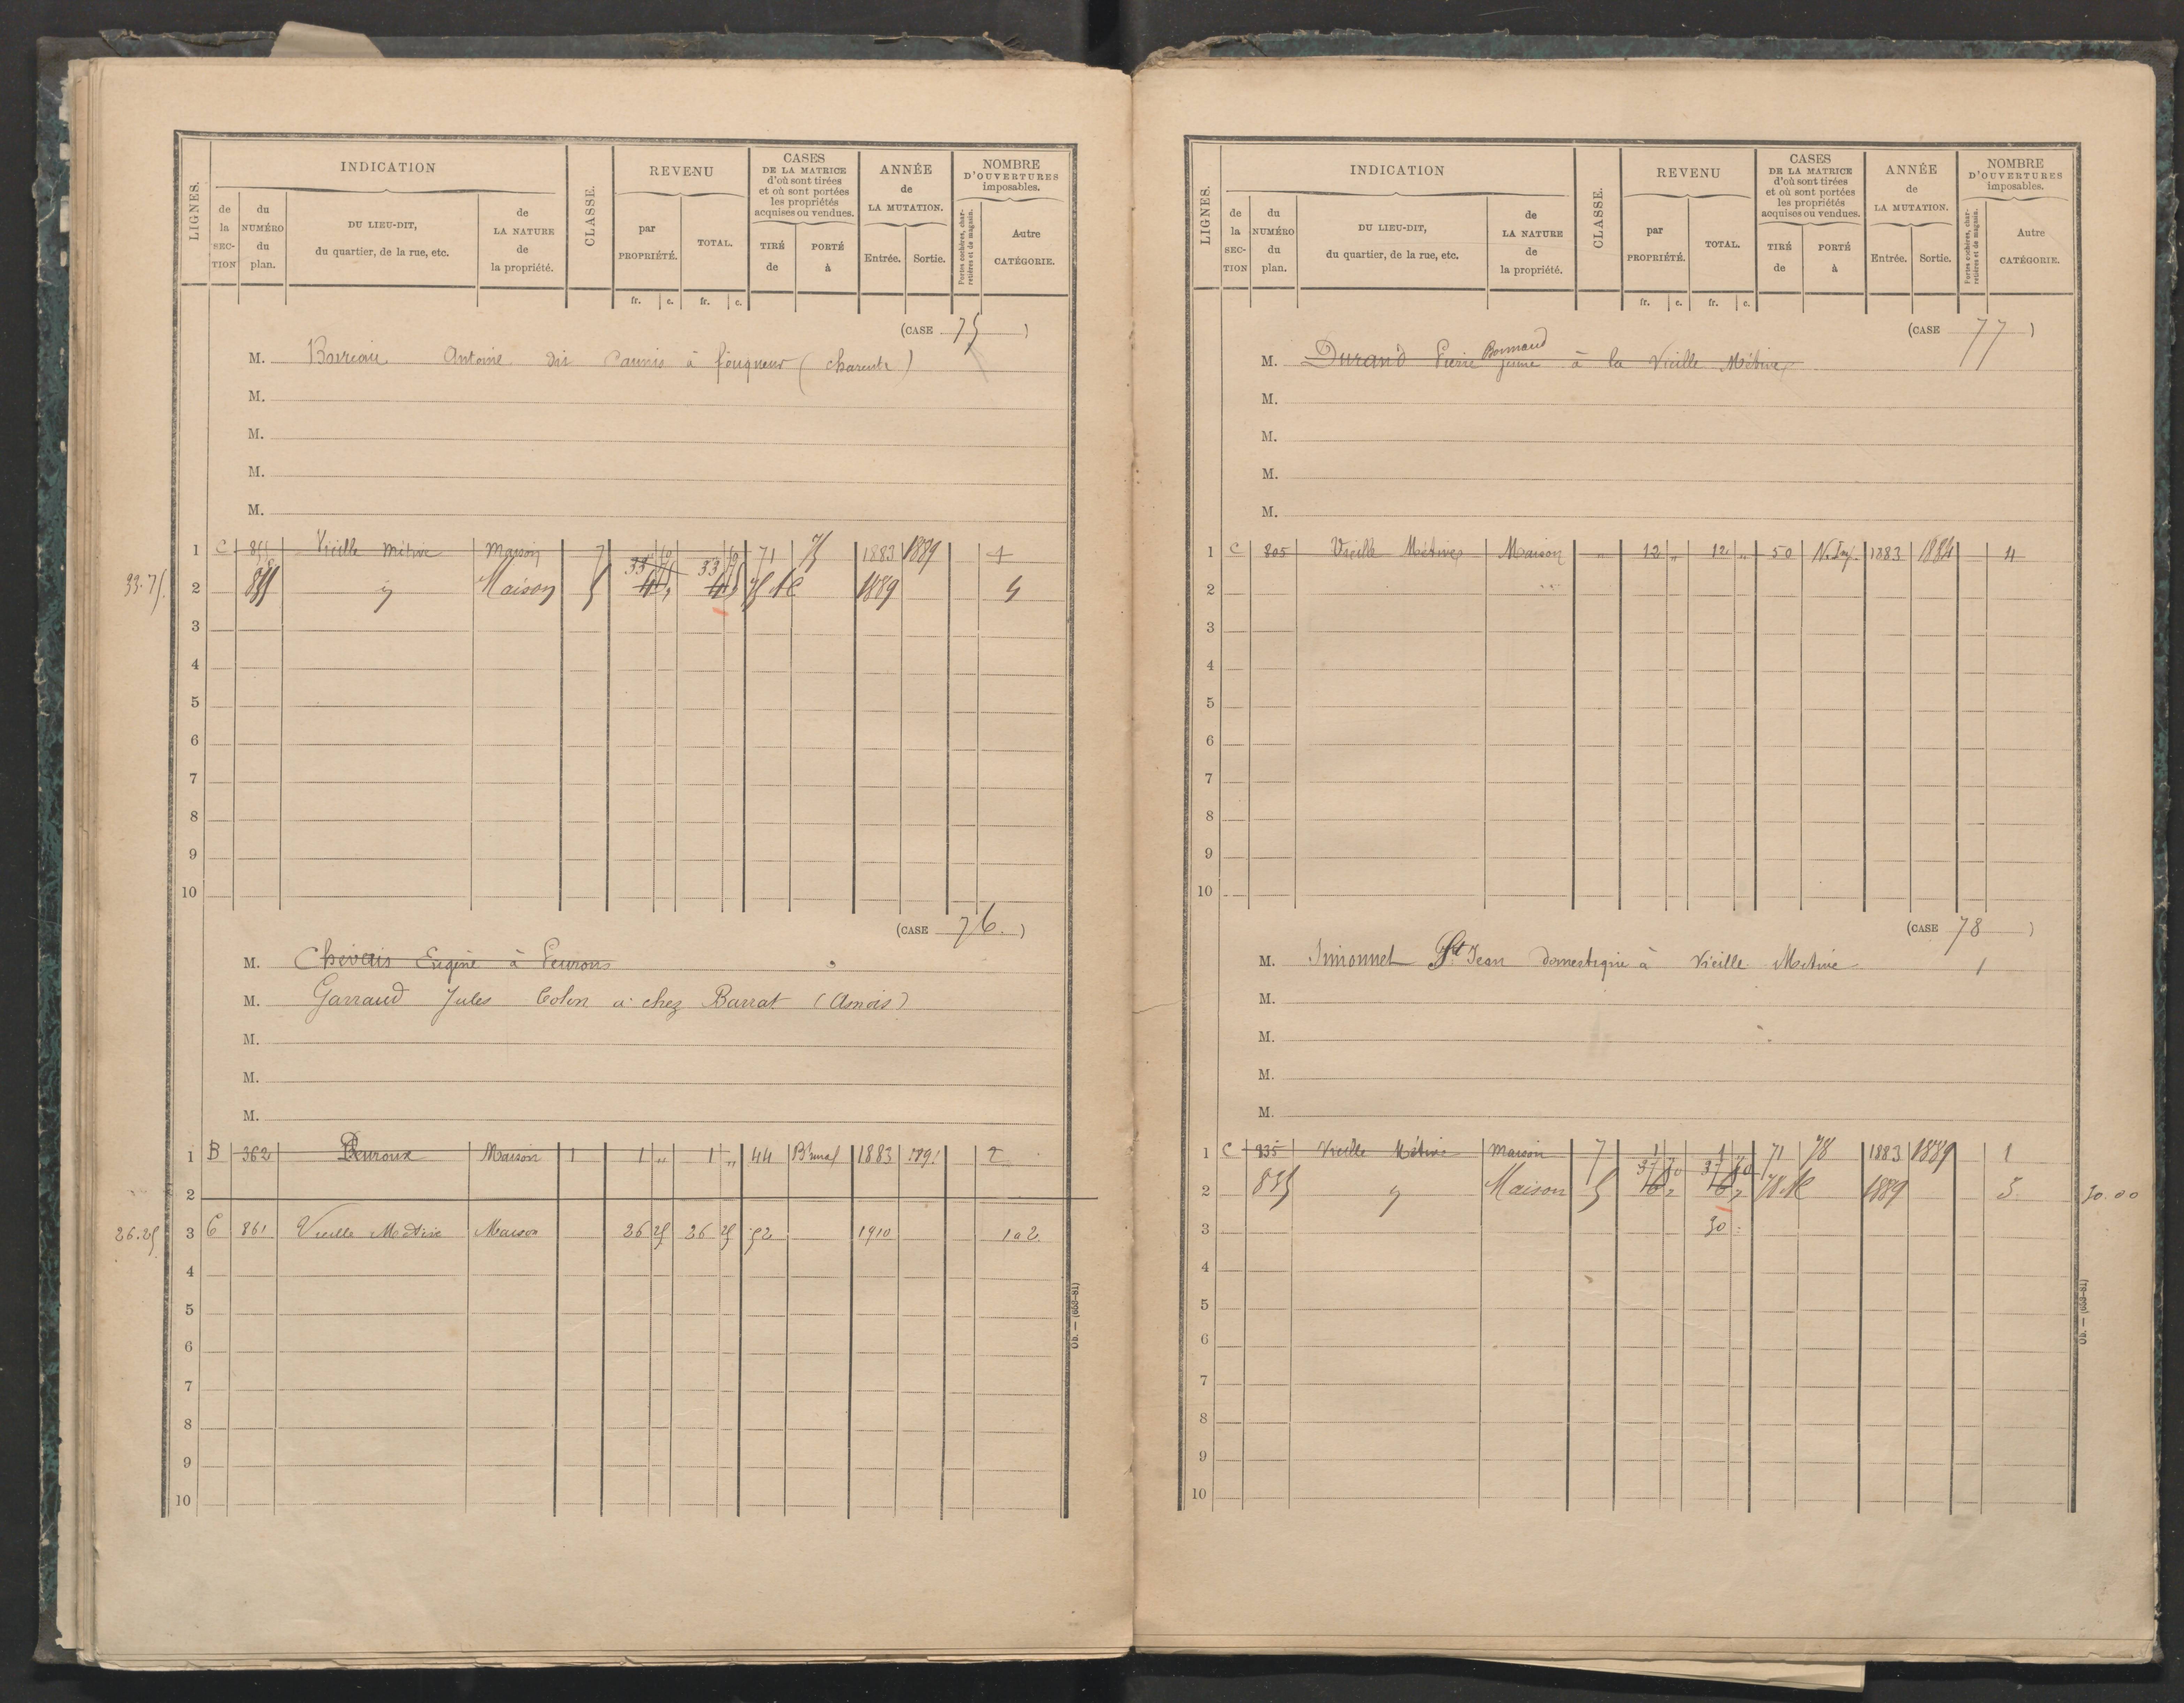 LIGNES. INDICATION CLASSE. REVENU CASES DE LA MATRICE d'où sont tirées et où sont portées les propriétés acquises ou vendues. ANNÉE de LA MUTATION. NOMBRE D'OUVERTURES imposables.
de la SECTION du NUMÉRO du plan. DU LIEU-DIT, du quartier, de la rue, etc. de LA NATURE de la propriété. par PROPRIÉTÉ. TOTAL. TIRÉ de PORTÉ à Entrée. Sortie. Portes cochères, charretières et de magasin. Autre CATÉGORIE.
fr. c. fr. c.
(CASE 75)
M. Antoine dit à fouqueur (Charente)
M.
M.
M.
M.
1 C 855 Vieille Métive Maison 7 71 75 1883 1889 4
33.75. 2 855 Maison 5 1889 4
3
4
5
6
7
8
9
10
(CASE 76.)
M. Eugène à
M. Garraud Jules Colon à chez Barrat (Asnois)
M.
M.
M.
1 B 362 Maison 1 1 " 1 " 44 1883 1891 2
2
26.25 3 C 861 Vieille Métive Maison 26 25 26 25 52 1910 1 a 2
4
5
6
7
8
9
10
Ob. — (653-81)
LIGNES. INDICATION CLASSE. REVENU CASES DE LA MATRICE d'où sont tirées et où sont portées les propriétés acquises ou vendues. ANNÉE de LA MUTATION. NOMBRE D'OUVERTURES imposables.
de la SECTION du NUMÉRO du plan. DU LIEU-DIT, du quartier, de la rue, etc. de LA NATURE de la propriété. par PROPRIÉTÉ. TOTAL. TIRÉ de PORTÉ à Entrée. Sortie. Portes cochères, charretières et de magasin. Autre CATÉGORIE.
fr. c. fr. c.
(CASE 77)
Bonnaud
M. Durand Pierre jeune à la Vieille Métive
M.
M.
M.
M.
1 C 805 Vieille Métive Maison " 12 " 12 " 50 N. Imp. 1883 1884 4
2
3
4
5
6
7
8
9
10
(CASE 78)
M. Simonnet St Jean domestique à Vieille Métive 1
M.
M.
M.
M.
1 C 835 Vieille Métive Maison 7 1 1 71 78 1883 1889 1
37 50 37 50
2 835 Maison 5 1889 5 30.00
3 30
4
5
6
7
8
9
10
Ob. — (653-81)